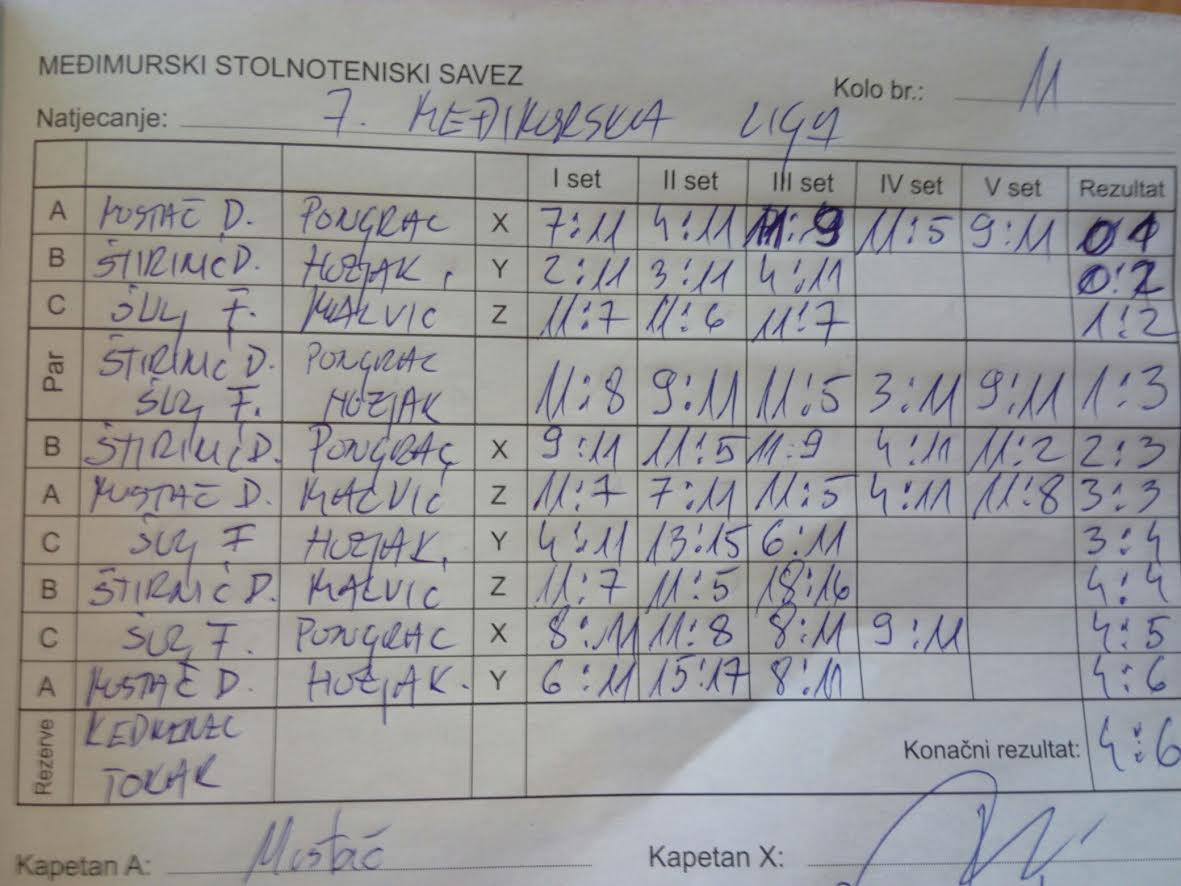 MEĐIMURSKI STOLNOTENISKI SAVEZ
Kolo br.: 11
Natjecanje: 7. MEĐIMURSKA LIGA
I set II set III set IV set V set Rezultat
A MUSTAČ D. PONGRAC X 7:11 4:11 11:9 11:5 9:11 0:1
B ŠTIRINIĆ D. HOZJAK Y 2:11 3:11 4:11 0:2
C ŠULJ F. MALVIĆ Z 11:7 11:6 11:7 1:2
Par ŠTIRINIĆ D. PONGRAC
ŠULJ F. HOZJAK 11:8 9:11 11:5 3:11 9:11 1:3
B ŠTIRINIĆ D. PONGRAC X 9:11 11:5 11:9 4:11 11:2 2:3
A MUSTAČ D. MALVIĆ Z 11:7 7:11 11:5 4:11 11:8 3:3
C ŠULJ F HOZJAK Y 4:11 13:15 6:11 3:4
B ŠTIRNIĆ D. MALVIĆ Z 11:7 11:5 18:16 4:4
C ŠULJ F. PONGRAC X 8:11 11:8 8:11 9:11 4:5
A MUSTAČ D. HOZJAK. Y 6:11 15:17 8:11 4:6
Rezerve
TOKAR
Konačni rezultat: 4:6
Kapetan A: Mustač
Kapetan X: